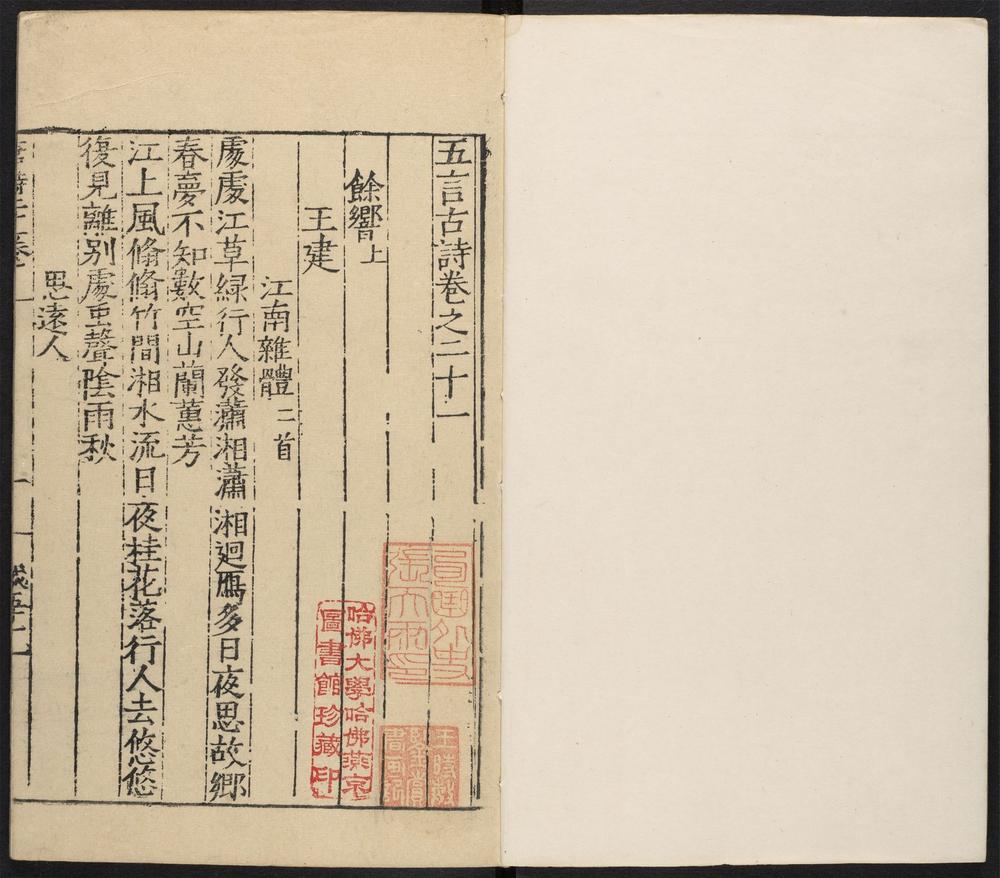 五言古詩卷之二十一
餘響上
王建
江南雜體二首
處處江草綠行人發瀟湘瀟湘迴鴈多日夜思故鄉
春夢不知數空山蘭蕙芳
江上風翛翛竹間湘水流日夜桂花落行人去悠悠
復見離別處虫聲陰雨秋
思遠人
哈佛大學哈佛燕京
圖書館珍藏印